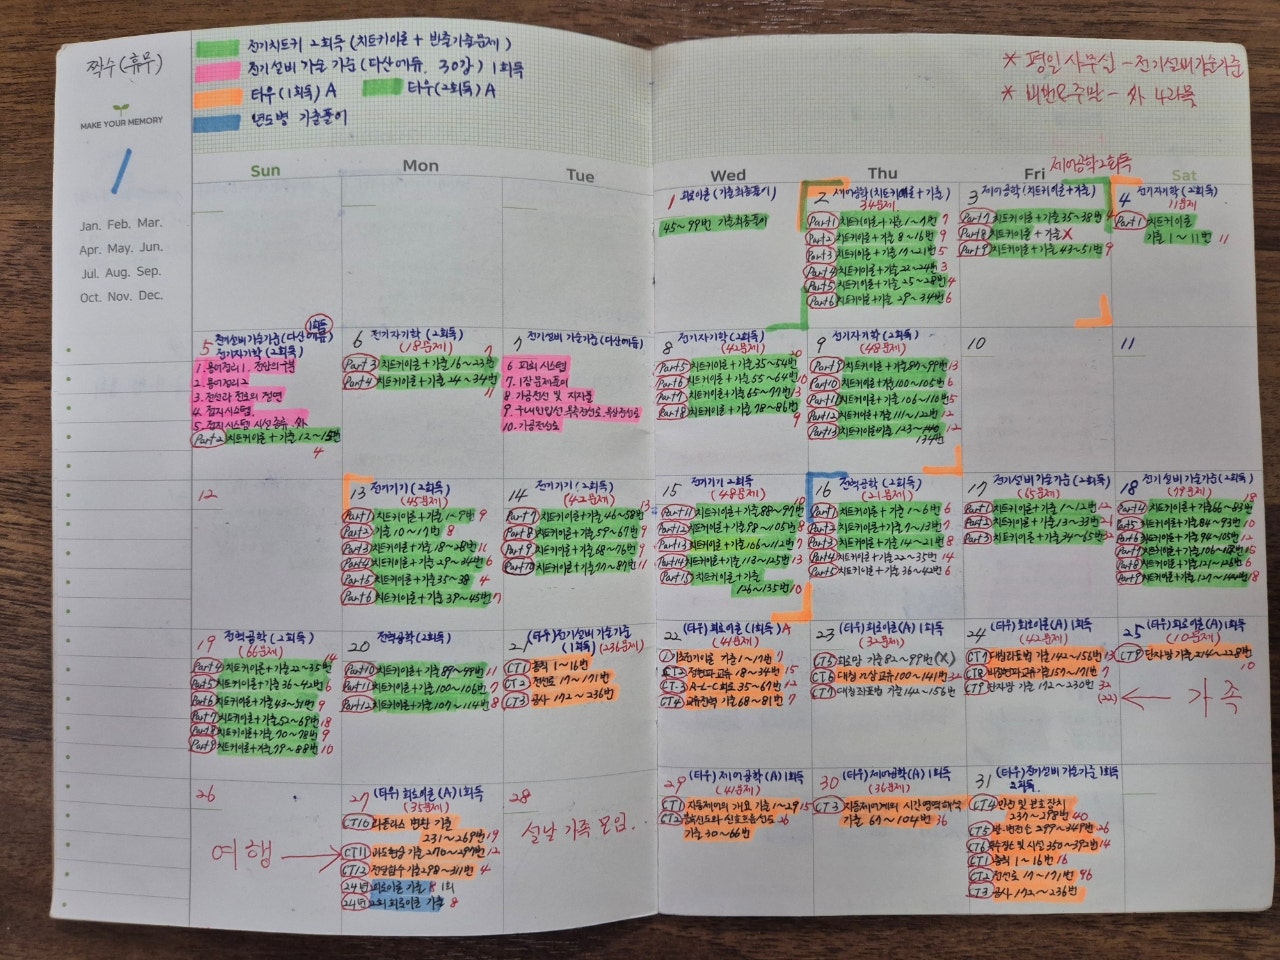 짝수(휴무)
MAKE YOUR MEMORY
1
Jan. Feb. Mar.
Apr. May. Jun.
Jul. Aug. Sep.
Oct. Nov. Dec.
전기치트키 2회독 (치트키이론 + 반출기출문제)
전기설비 기술 기준 (다산에듀. 30강) 1회독
타우(1회독) A 타우(2회독) A
년도별 기출풀이
* 평일 사무실 - 전기설비기술기준
* 비번&주말 - 外 4과목
제어공학2회독
Sun Mon Tue Wed Thu Fri Sat
1 회로이론 (기출최종풀이)
45~99번 기출최종풀이
2 제어공학(치트키이론 + 기출)
34문제
Part1 치트키이론+기출 1~7번 7
Part2 치트키이론+기출 8~16번 9
Part3 치트키이론+기출 17~21번 5
Part4 치트키이론+기출 22~24번 3
Part5 치트키이론+기출 25~28번 4
Part6 치트키이론+기출 29~34번 6
3 제어공학(치트키이론+기출)
Part7 치트키이론+기출 35~38번 4
Part8 치트키이론 + 기출 X
Part9 치트키이론+기출 43~51번 9
4 전기자기학 (2회독)
11문제
Part1 치트키이론
기출 1~11번 11
1회독
5 전기설비기술기준(다산에듀)
전기자기학 (2회독)
1. 용어정리 1. 전압의구분
2. 용어정리2
3. 전선과 전로의 절연
4. 접지시스템
5. 접지시스템 시설종류 外
Part2 치트키이론+기출 12~15번
4
6 전기자기학 (2회독)
(18문제)
Part3 치트키이론+기출 16~22번 7
Part4 치트키이론+기출 24~34번
11
7 전기설비 기술기준 (다산에듀)
6 피뢰 시스템
7. 1장 문제풀이
8 가공전선 및 지지물
9. 구내인입선 옥측전선로. 옥상전선로
10. 가공전선로
8 전기자기학 (2회독)
(42문제)
Part5 치트키이론+기출 35~54번 20
Part6 치트키이론+기출 55~64번 10
Part7 치트키이론+기출 65~77번 13
Part8 치트키이론+기출 78~86번
9
9 전기자기학 (2회독)
(48문제)
Part9 치트키이론+기출 87~99번 13
Part10 치트키이론+기출 100~105번 6
Part11 치트키이론+기출 106~110번 5
Part12 치트키이론+기출 111~122번 12
Part13 치트키이론+기출 123~
134번 12
10
11
12
13 전기기기 (2회독)
(45문제)
Part1 치트키이론+기출 1~9번 9
Part2 기출 10~17번 8
Part3 치트키이론+기출 18~28번 11
Part4 치트키이론+기출 29~34번 6
Part5 치트키이론+기출 35~38 4
Part6 치트키이론+기출 39~45번 7
14 전기기기 (2회독)
(42문제)
Part7 치트키이론+기출 46~58번 13
Part8 치트키이론+기출 59~67번 9
Part9 치트키이론+기출 68~76번 9
Part10 치트키이론+기출 77~87번 11
15 전기기기 2회독
(48문제)
Part11 치트키이론+기출 88~97번 10
Part12 치트키이론+기출 98~105번 8
Part13 치트키이론+기출 106~112번 7
Part14 치트키이론+기출 113~125번 13
Part15 치트키이론 + 기출
126~135번 10
16 전력공학 (2회독)
(21문제)
Part1 치트키이론+기출 1~6번 6
Part2 치트키이론+기출 7~13번 7
Part3 치트키이론+기출 14~21번 8
Part4 치트키이론+기출 22~35번 14
Part5 치트키이론+기출 36~42번 6
17 전기설비기술기준 (2회독)
(65문제)
Part1 치트키이론+기출 1~12번 12
Part2 치트키이론+기출 13~33번 21
Part3 치트키이론+기출 34~65번 32
18 전기설비 기술기준(2회독)
(79문제)
Part4 치트키이론+기출 66~83번 18
Part5 치트키이론+기출 84~93번 10
Part6 치트키이론+기출 94~105번 12
Part7 치트키이론+기출 106~ 15
Part8 치트키이론+기출 121~126번 6
Part9 치트키이론+기출 127~144번 18
19 전력공학 (2회독)
(66문제)
Part4 치트키이론+기출 22~35번 14
Part5 치트키이론+기출 36~42번 6
Part6 치트키이론+기출 43~51번 9
Part7 치트키이론+기출 52~69번 18
Part8 치트키이론+기출 70~78번 9
Part9 치트키이론+기출 79~88번 10
20 전력공학 (2회독)
Part10 치트키이론+기출 89~99번 11
Part11 치트키이론+기출 100~106번 7
Part12 치트키이론+기출 107~114번 8
21 (타우) 전기설비 기술기준
(1회독) (236문제)
CT1 총칙 1~16번
CT2 전선로 17~171번
CT3 공사 172~236번
22 (타우) 회로이론 (1회독) A
(41문제)
1 기초전기이론 기출 1~17번 7
CT2 정현파교류 18~34번 15
CT3 R-L-C회로 35~67번 12
CT4 교류전력 기출 68~81번 7
23 (타우) 회로이론(A) 1회독
(32문제)
CT5 회로망 기출 82~99번 (X)
CT6 대칭 기출 100~141번 32
CT7 대칭좌표법 기출 142~156번
24 (타우) 회로이론(A) 1회독
(42문제)
CT7 대칭좌표법 기출 142~156번 13
CT8 비정현파교류 157~171번 7
CT9 단자망 기출 172~230번 32
(22)
25 (타우) 회로이론(A) 1회독
(10문제)
CT9 단자망 기출 214~228번
10
← 가족
26
여행 →
27 (타우) 회로이론 (A) 1회독
(35문제)
CT10 라플라스 변환 기출
231~269번 19
CT11 과도현상 기출 270~297번 12
CT12 전달함수 기출 298~311번 4
24년 회로이론 기출 8 1회
24년 2회 회로이론 기출 8
28
설날 가족 모임..
29 (타우) 제어공학(A) 1회독
(41문제)
CT1 자동제어의 개요 기출 1~29 15
CT2 블록선도와 신호흐름선도 26
기출 30~66번
30 (타우) 제어공학(A) 1회독
(36문제)
CT3 자동제어계의 시간영역해석
기출 67~104번 36
31 (타우) 전기설비 기술기준 1회독
2회독.
CT4 안전 및 보호장치
237~298번 40
CT5 발·변전소 299~349번 26
CT6 특수장소 및 시설 350~392번 14
CT1 총칙 1~16번 16
CT2 전선로 17~171번 96
CT3 공사 172~236번